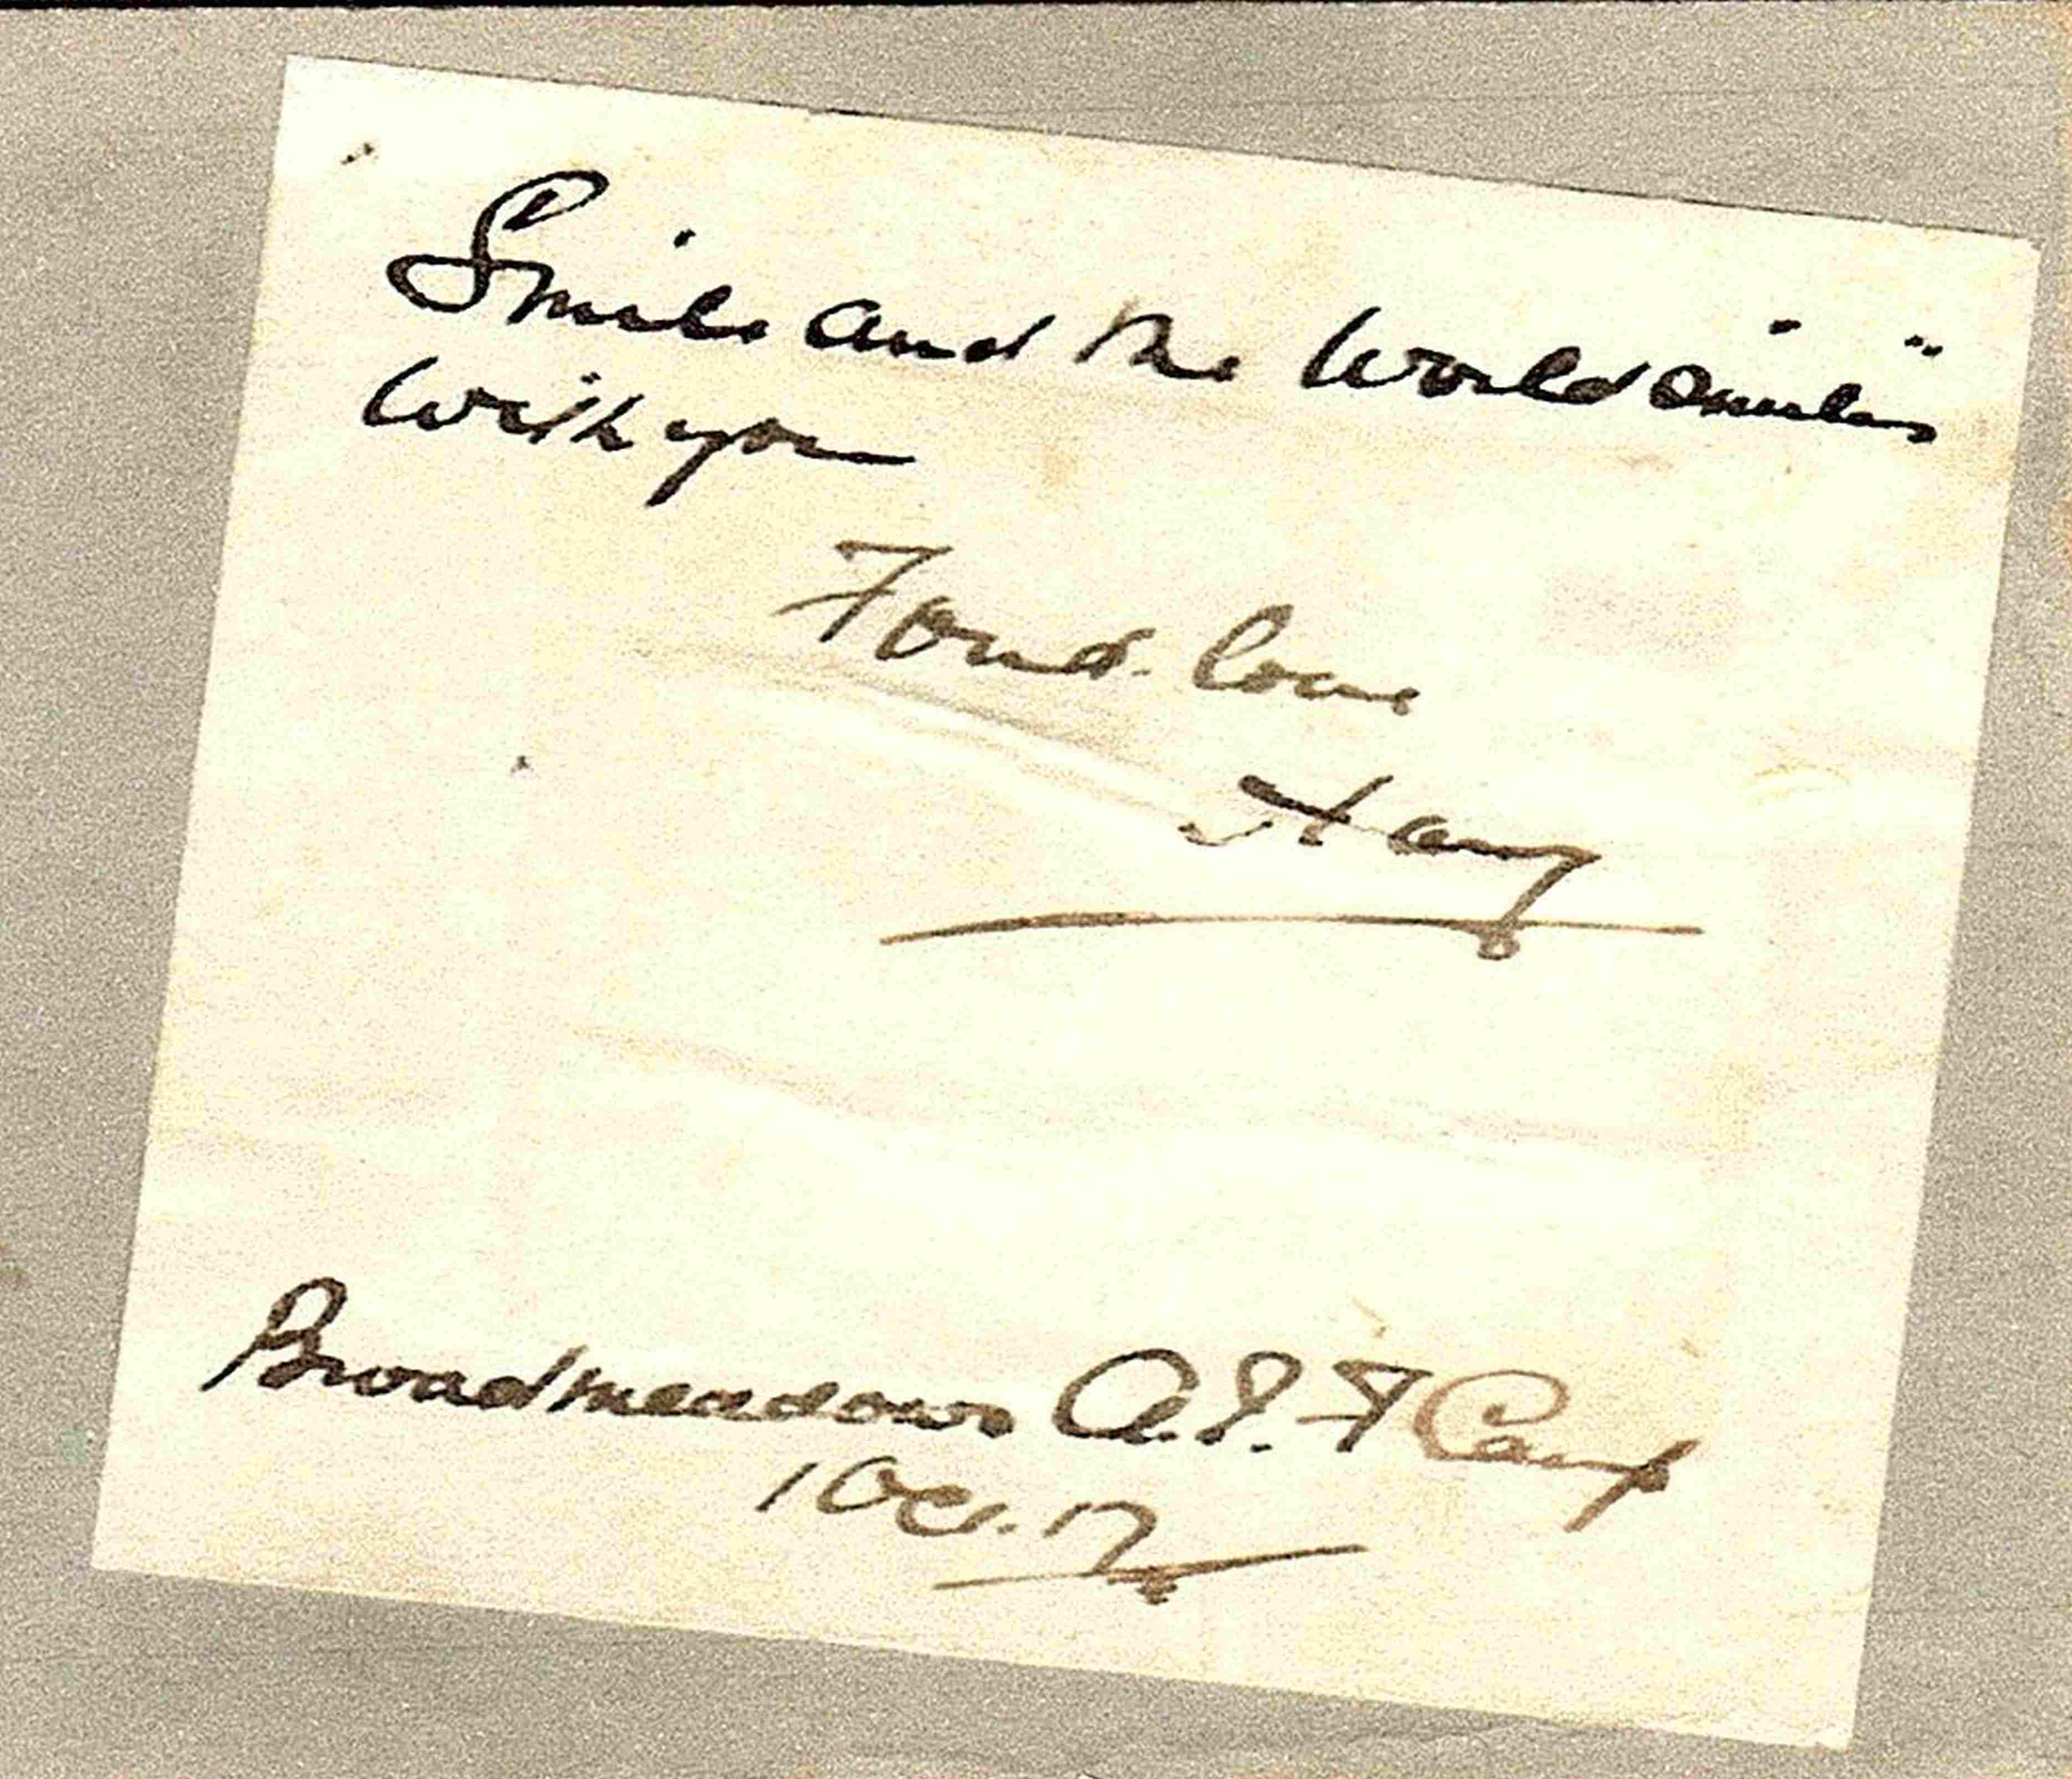 Smile and the World smiles"
With you
Fond love
Harry
Broadmeadows A.I.F Camp
1 Oct. 17